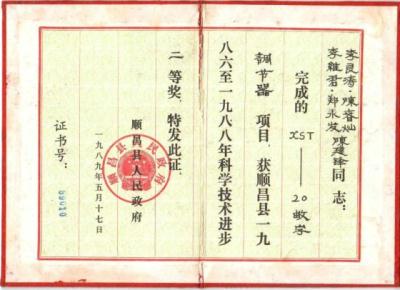 李良涛·陳睿灿
李維君·郑永发 陳建 同志：
完成的 XST——20 数字
调节器 项目，获顺昌县一九
八六至一九八八年科学技术进步
二等奖，特发此证。
顺昌县人民政府
一九八九年五月十七日
证书号：
顺昌县人民政府